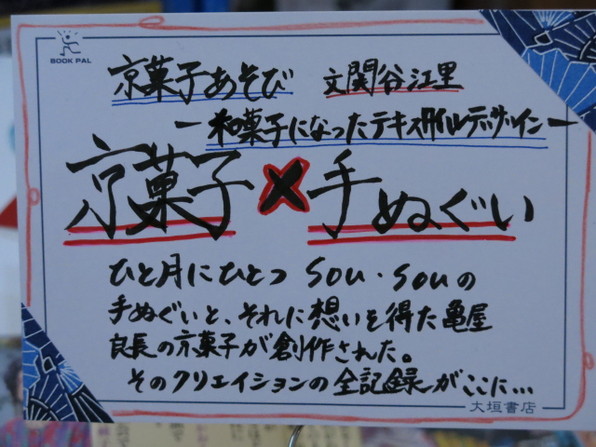 BOOK PAL
京菓子あそび 文関谷江里
ー和菓子になったテキスタイルデザインー
京菓子×手ぬぐい
ひと月にひとつ SOU・SOUの
手ぬぐいと、それに想いを得た亀屋
良長の京菓子が創作された。
そのクリエイションの全記録がここに…
大垣書店